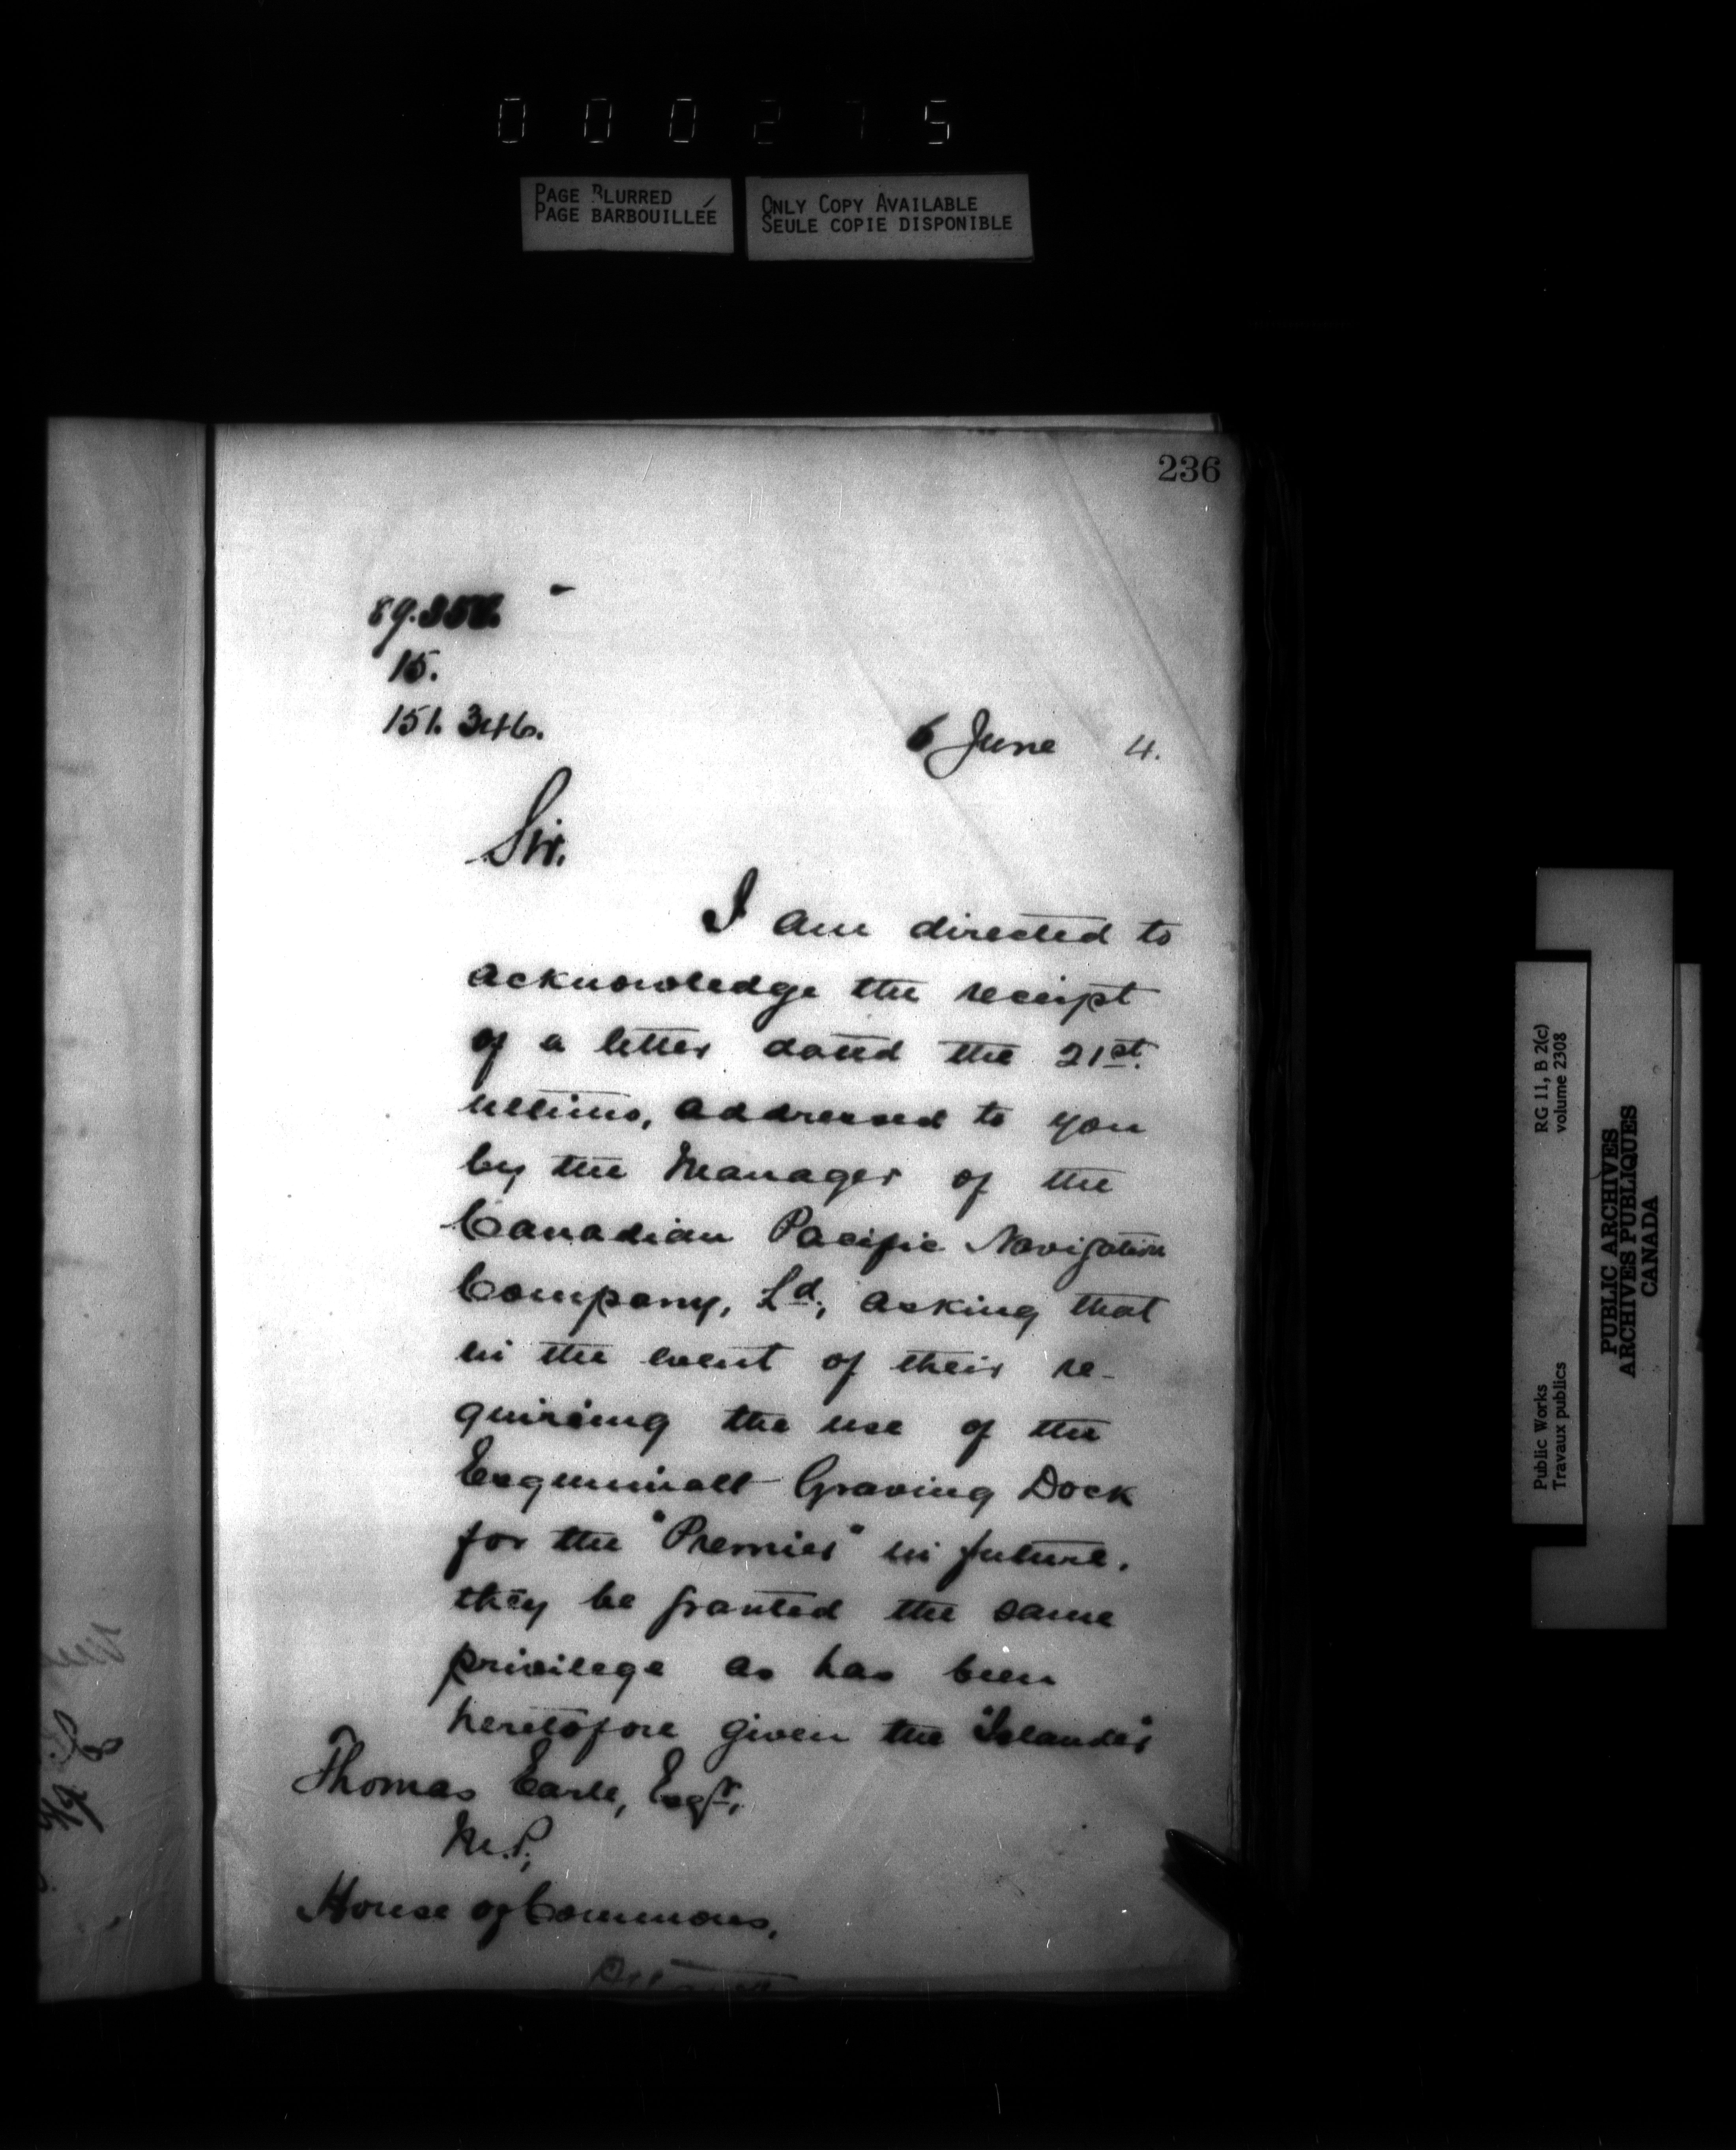 000275
PAGE BLURRED
PAGE BARBOUILLÉE
ONLY COPY AVAILABLE
SEULE COPIE DISPONIBLE
236
15.
151.346.
6 June 4.
Sir.
I am directed to
acknowledge the receipt
of a letter dated the 21st
ultimo, addressed to you
by the Manager of the
Canadian Pacific Navigation
Company, Ld, asking that
in the event of their re-
quiring the use of the
Esquimalt Graving Dock
for the "Premier" in future,
they be granted the same
privilege as has been
heretofore given the "Islander"
Thomas Earle, Esqr,
M.P.,
House of Commons,
RG 11, B 2(c)
volume 2308
Public Works
Travaux publics
PUBLIC ARCHIVES
ARCHIVES PUBLIQUES
CANADA